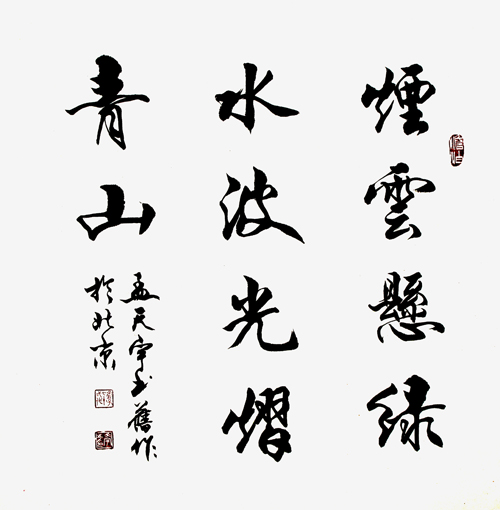 煙雲懸綠
水波光熠
青山
孟天宇书舊作
於北京